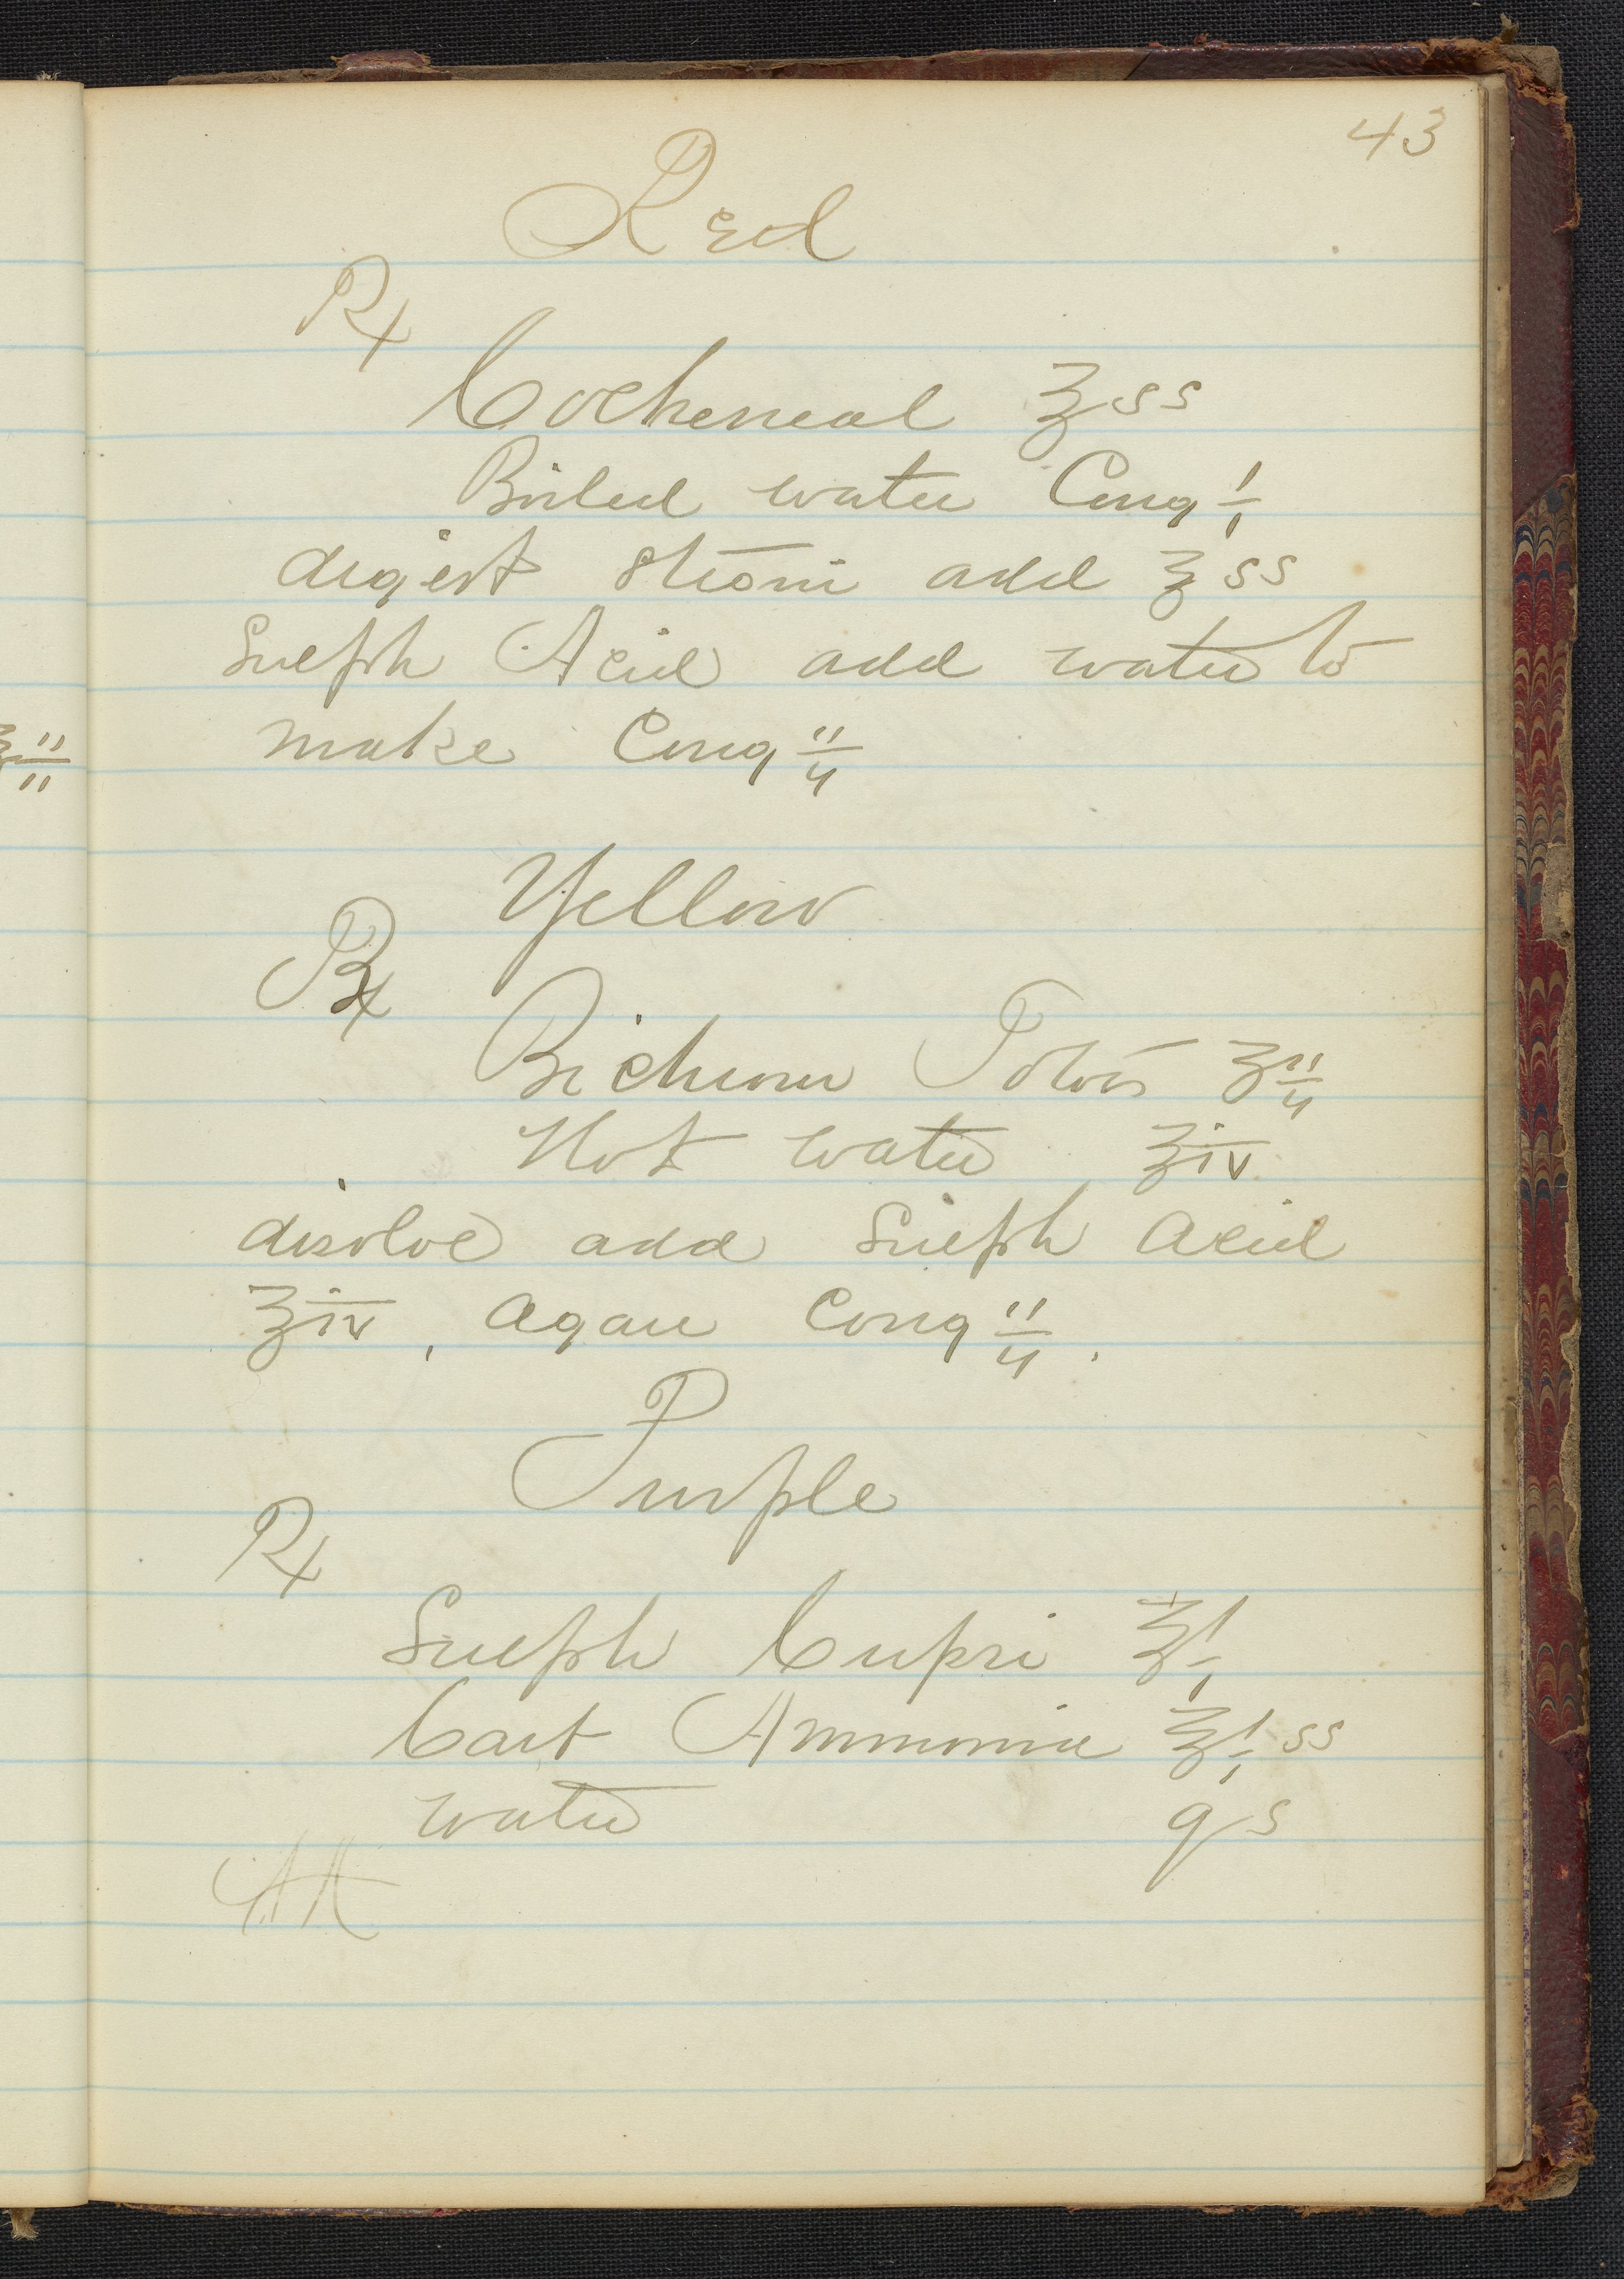 43
Red
Rx
Cocheneal ℥ss
Boiled water Cong i
digest strain add ℥ss
Sulph Acid add water to
make Cong ii
Yellow
Rx
Bichrom Potass ℥ii
Hot water ℥iv
disolve add Sulph acid
℥iv, Aquae Cong ii.
Purple
Rx
Sulph Cupri ℥i
Carb Ammonia ℥i ss
water qs